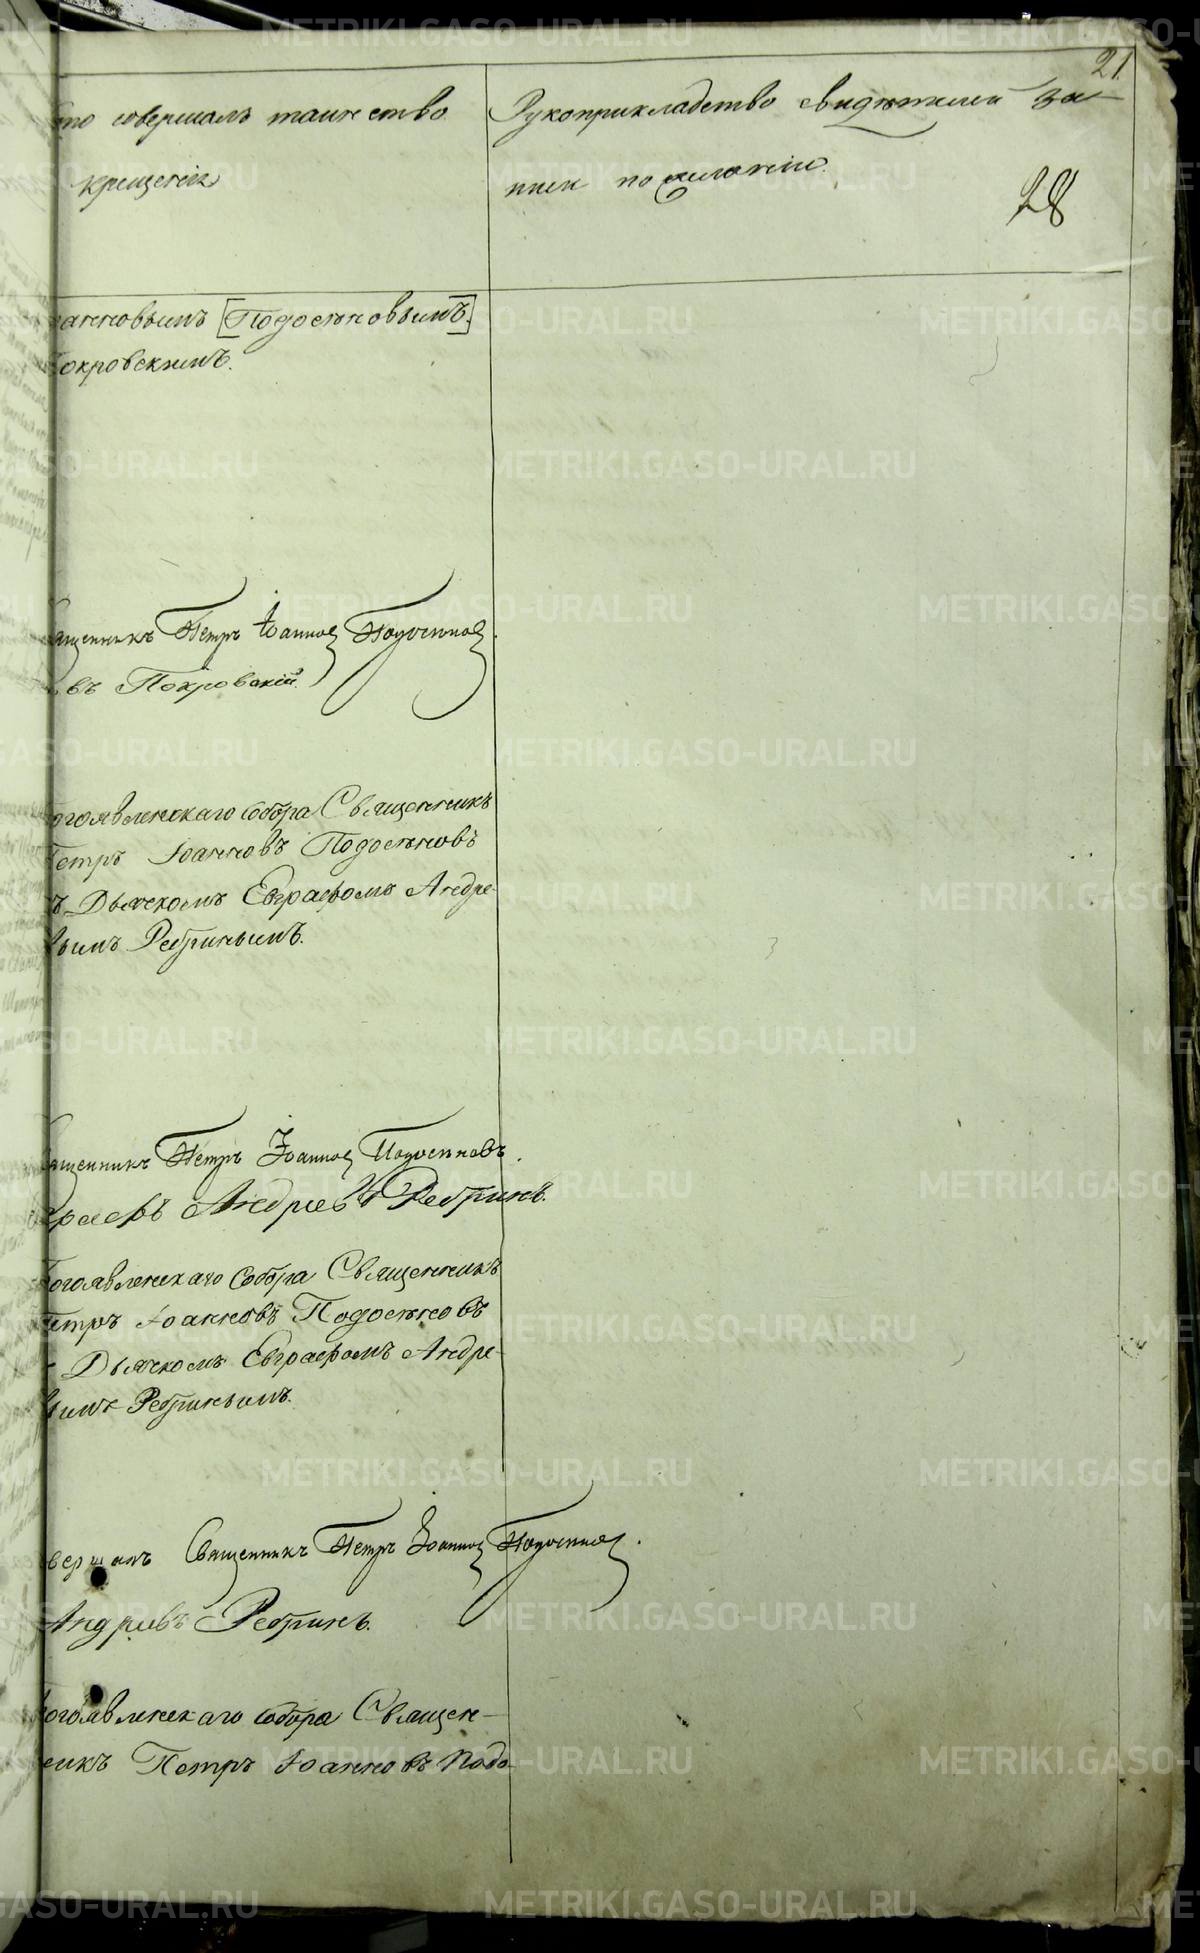 21
то совершалъ таинство
крещенія
Рукоприкладство свидѣтелей за-
писи по желанію.
28
анновымъ [Подосеновымъ.]
окровскимъ.
ященникъ Петръ Іоанновъ Подосеновъ.
въ Покровскій.
огоявленскаго собора Священникъ
Петръ Іоанновъ Подосеновъ
ъ Дьячкомъ Евграфомъ Андре-
вымъ Ребринымъ.
ященникъ Петръ Іоанновъ Подосеновъ.
рафъ Андреевъ Ребринъ.
огоявленскаго Собора Священникъ
етръ Іоанновъ Подосеновъ
Дьячкомъ Евграфомъ Андре-
вымъ Ребринымъ.
вершалъ Священникъ Петръ Іоанновъ Подосеновъ.
Андреевъ Ребринъ.
огоявленскаго собора Священ-
никъ Петръ Іоанновъ Подо-
METRIKI.GASO-URAL.RU